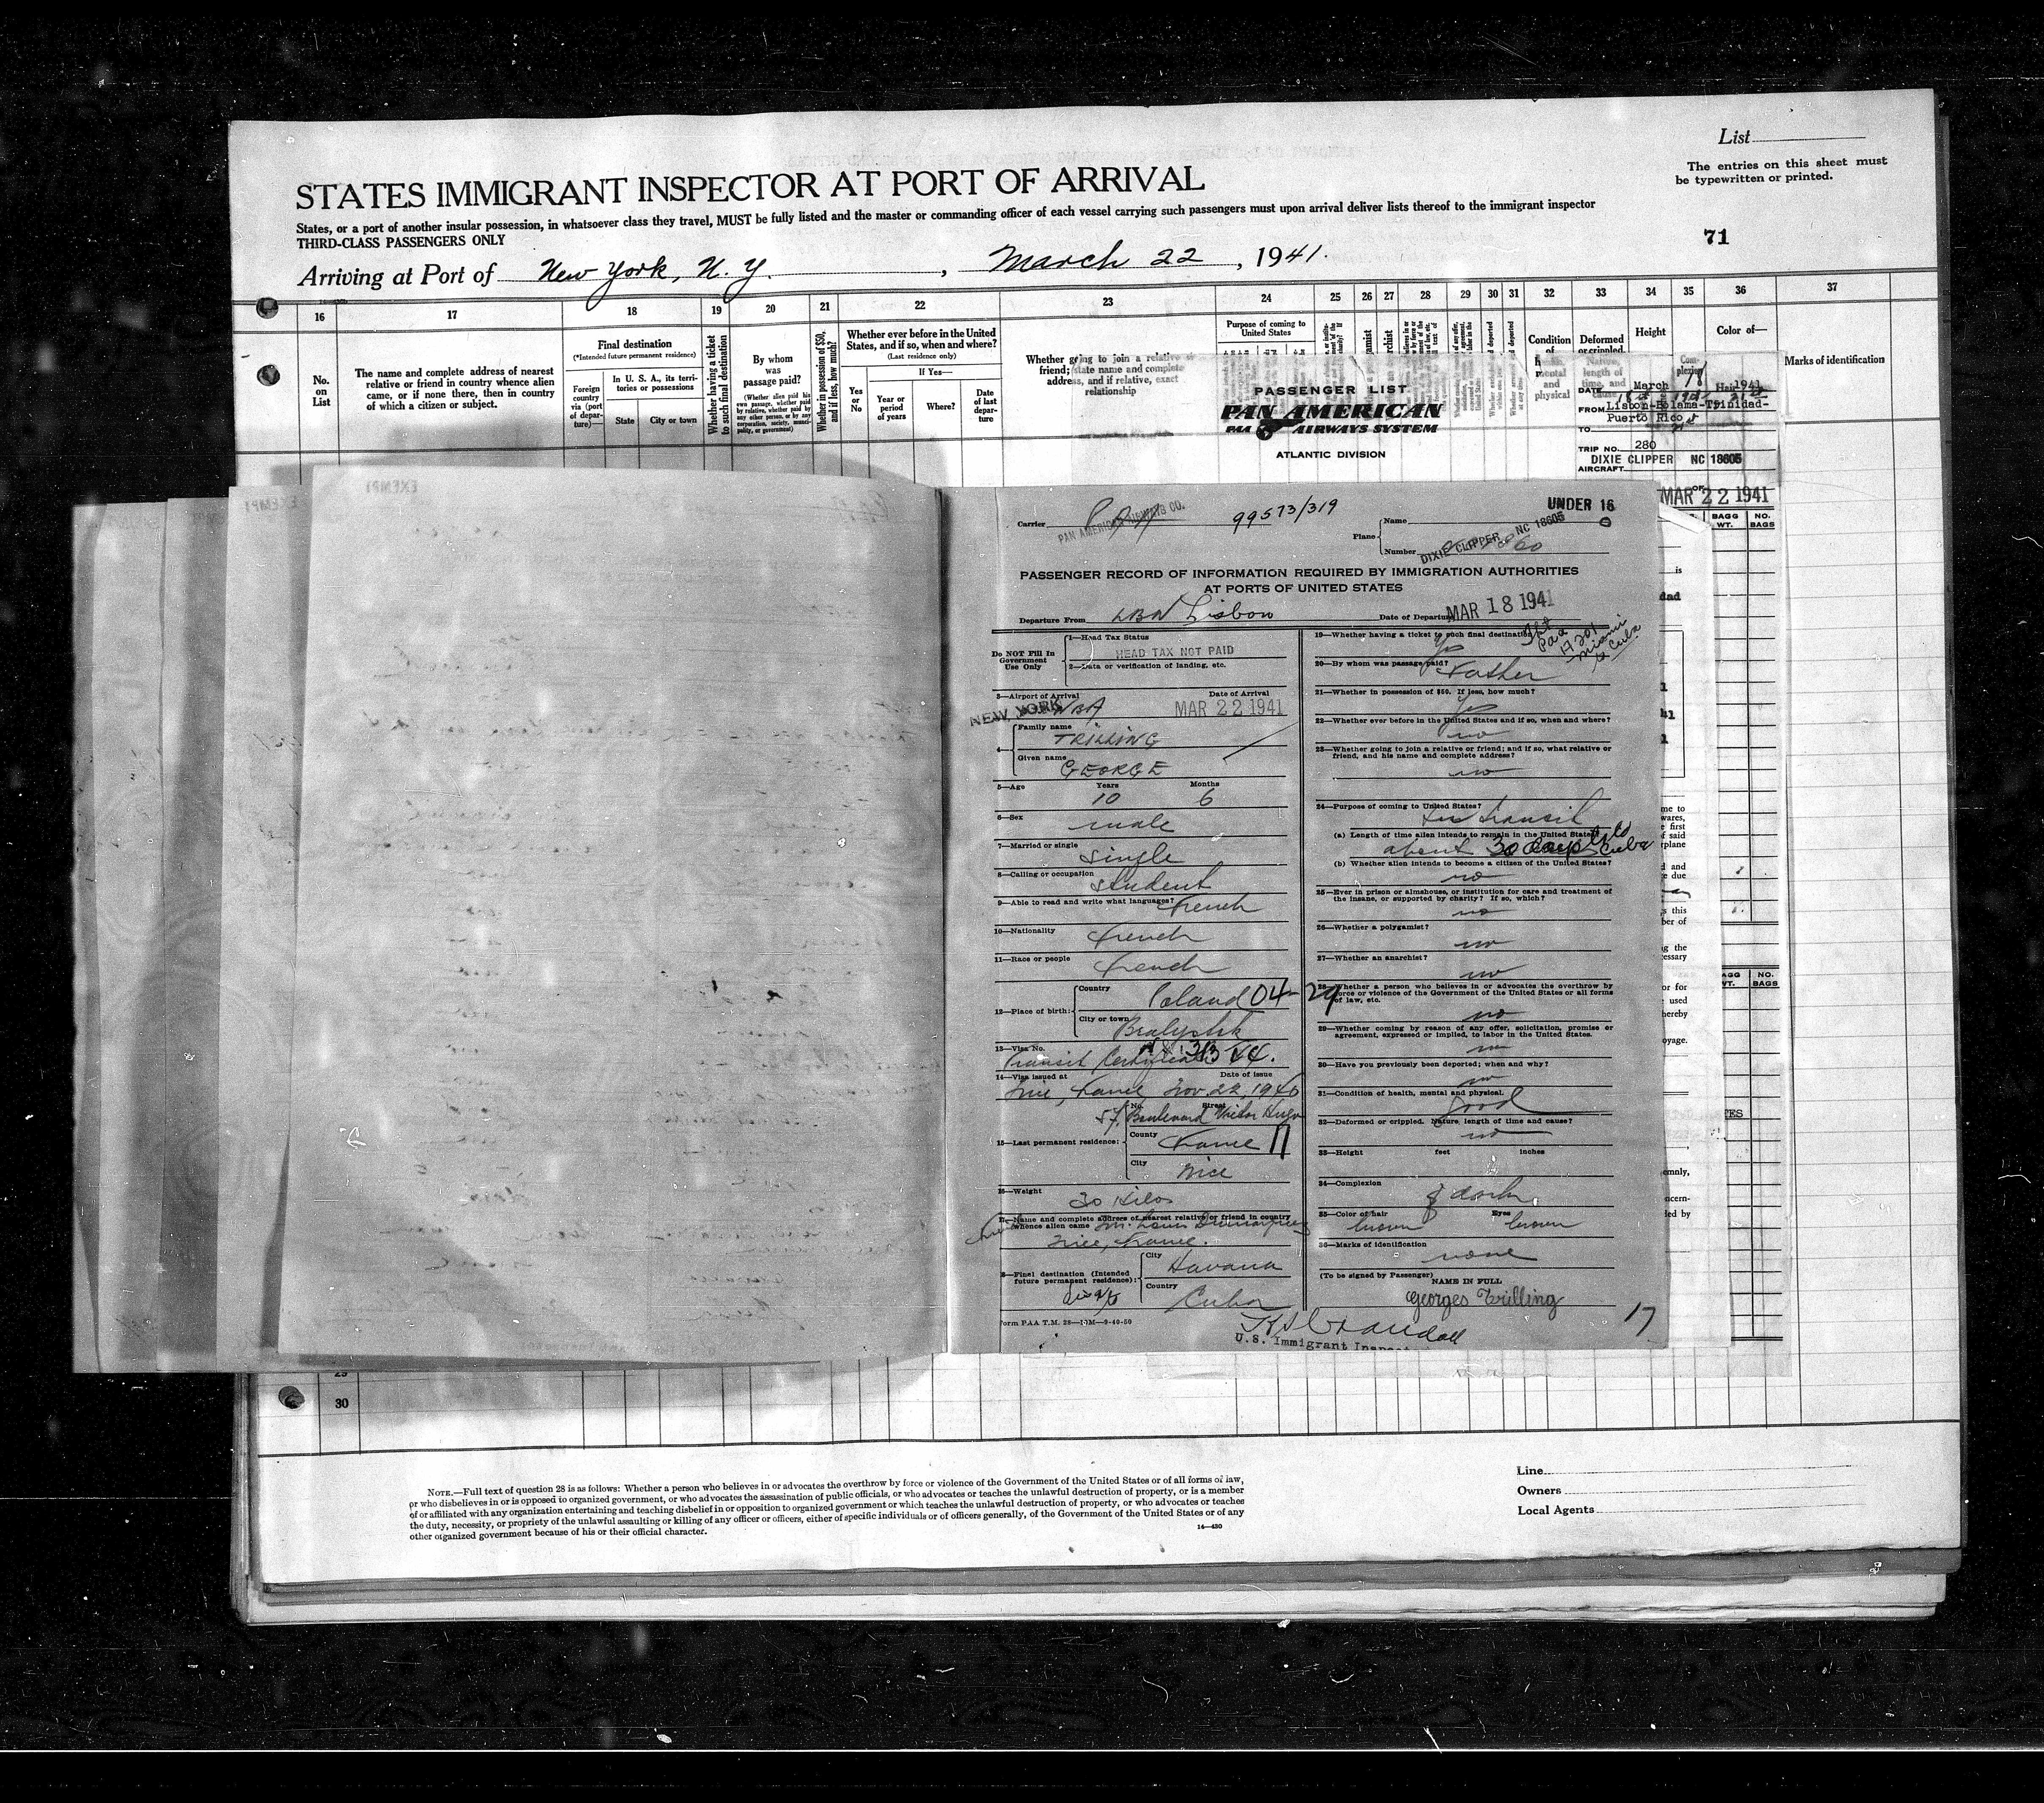 List
The entries on this sheet must
be typewritten or printed.
STATES IMMIGRANT INSPECTOR AT PORT OF ARRIVAL
States, or a port of another insular possession, in whatsoever class they travel, MUST be fully listed and the master or commanding officer of each vessel carrying such passengers must upon arrival deliver lists thereof to the immigrant inspector
THIRD-CLASS PASSENGERS ONLY
71
Arriving at Port of New York, N. Y. , March 22 , 1941.
16 17 18 19 20 21 22 23 24 25 26 27 28 29 30 31 32 33 34 35 36 37
No.
on
List
The name and complete address of nearest
relative or friend in country whence alien
came, or if none there, then in country
of which a citizen or subject.
Final destination
(*Intended future permanent residence)
Foreign
country
via (port
of depar-
ture)—
In U. S. A., its terri-
tories or possessions
State
City or town
Whether having a ticket
to such final destination
By whom
was
passage paid?
(Whether alien paid his
own passage, whether paid
by relative, whether paid
by any other person, or by any
corporation, society, munici-
pality, or government)
Whether in possession of $50,
and if less, how much?
Whether ever before in the United
States, and if so, when and where?
(Last residence only)
Yes
or
No
If Yes—
Year or
period
of years
Where?
Date
of last
depar-
ture
Whether going to join a relative or
friend; state name and complete
address, and if relative, exact
relationship
Purpose of coming to
United States
Condition
of
mental and
physical
Deformed
or crippled.
Nature,
length of
time, and
Height
Com-
plexion
Color of—
Hair
Marks of identification
PASSENGER LIST
PAN AMERICAN
PAA AIRWAYS SYSTEM
ATLANTIC DIVISION
DATE March 18 1941
FROM Lisbon-Bolama-Trinidad-
Puerto Rico
TO
TRIP NO. 280
DIXIE CLIPPER NC 18605
AIRCRAFT
MAR 22 1941
BAGG
WT.
NO.
BAGS
UNDER 16
Carrier PAA
PAN AMERICAN AIRWAYS CO.
99573/319
Plane
Name
Number
DIXIE CLIPPER NC 18605
PASSENGER RECORD OF INFORMATION REQUIRED BY IMMIGRATION AUTHORITIES
AT PORTS OF UNITED STATES
Departure From LBN Lisbon
Date of Departure MAR 18 1941
Do NOT Fill In
Government
Use Only
1—Head Tax Status
HEAD TAX NOT PAID
2—Data or verification of landing, etc.
3—Airport of Arrival
NEW YORK
Date of Arrival
MAR 22 1941
4—
Family name
TRILLING
Given name
GEORGE
5—Age
Years
10
Months
6
6—Sex
male
7—Married or single
single
8—Calling or occupation
student
9—Able to read and write what languages? French
10—Nationality
French
11—Race or people
French
12—Place of birth:
Country
Poland 04-29
City or town
Bialystok
13—Visa No.
Transit Certificate 313
14—Visa issued at
Nice, France
Date of issue
Nov. 22, 1940
15—Last permanent residence:
No. Street
57, Boulevard Victor Hugo
County
France
City
Nice
16—Weight
30 kilos
17—Name and complete address of nearest relative or friend in country
whence alien came
Nice, France.
18—Final destination (Intended
future permanent residence):
City
Havana
Country
Cuba
Form PAA T.M. 28—10M—9-40-50
19—Whether having a ticket to such final destination?
yes
PAA
Miami
to Cuba
20—By whom was passage paid?
Father
21—Whether in possession of $50. If less, how much?
yes
22—Whether ever before in the United States and if so, when and where?
no
23—Whether going to join a relative or friend; and if so, what relative or
friend, and his name and complete address?
no
24—Purpose of coming to United States?
In transit
to Cuba
(a) Length of time alien intends to remain in the United States?
about 30 days
(b) Whether alien intends to become a citizen of the United States?
no
25—Ever in prison or almshouse, or institution for care and treatment of
the insane, or supported by charity? If so, which?
no
26—Whether a polygamist?
no
27—Whether an anarchist?
no
28—Whether a person who believes in or advocates the overthrow by
force or violence of the Government of the United States or all forms
of law, etc.
no
29—Whether coming by reason of any offer, solicitation, promise or
agreement, expressed or implied, to labor in the United States.
no
30—Have you previously been deported; when and why?
no
31—Condition of health, mental and physical.
good
32—Deformed or crippled. Nature, length of time and cause?
no
33—Height feet inches
34—Complexion
dark
35—Color of hair
brown
Eyes
brown
36—Marks of identification
none
(To be signed by Passenger)
NAME IN FULL
Georges Trilling
17
U.S. Immigrant Inspector
30
NOTE.—Full text of question 28 is as follows: Whether a person who believes in or advocates the overthrow by force or violence of the Government of the United States or of all forms of law,
or who disbelieves in or is opposed to organized government, or who advocates the assassination of public officials, or who advocates or teaches the unlawful destruction of property, or is a member
of or affiliated with any organization entertaining and teaching disbelief in or opposition to organized government or which teaches the unlawful destruction of property, or who advocates or teaches
the duty, necessity, or propriety of the unlawful assaulting or killing of any officer or officers, either of specific individuals or of officers generally, of the Government of the United States or of any
other organized government because of his or their official character.
14—430
Line
Owners
Local Agents